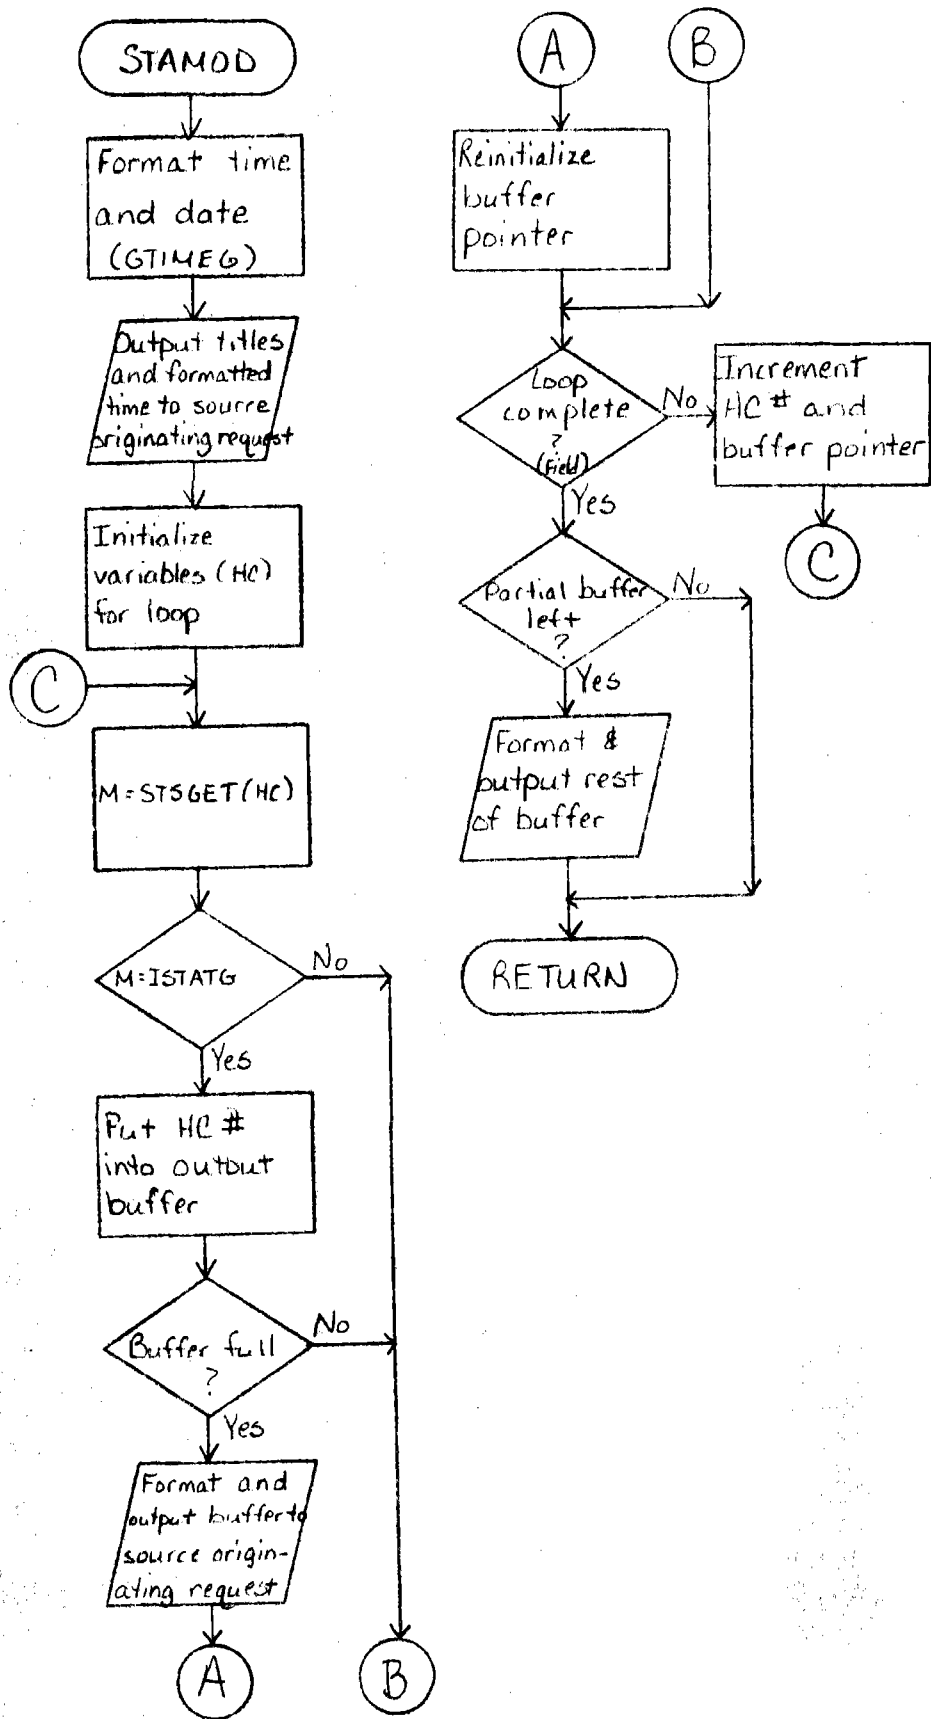 STAMOD
Format time
and date
(GTIMEG)
Output titles
and formatted
time to source
originating request
Initialize
variables (HC)
for loop
C
M=STSGET(HC)
M=ISTATG
No
Yes
Put HC #
into output
buffer
Buffer full
?
No
Yes
Format and
output buffer to
source origin-
ating request
A
B
A
B
Reinitialize
buffer
pointer
Loop
complete
?
(Field)
No
Increment
HC # and
buffer pointer
C
Yes
Partial buffer
left
?
No
Yes
Format &
output rest
of buffer
RETURN